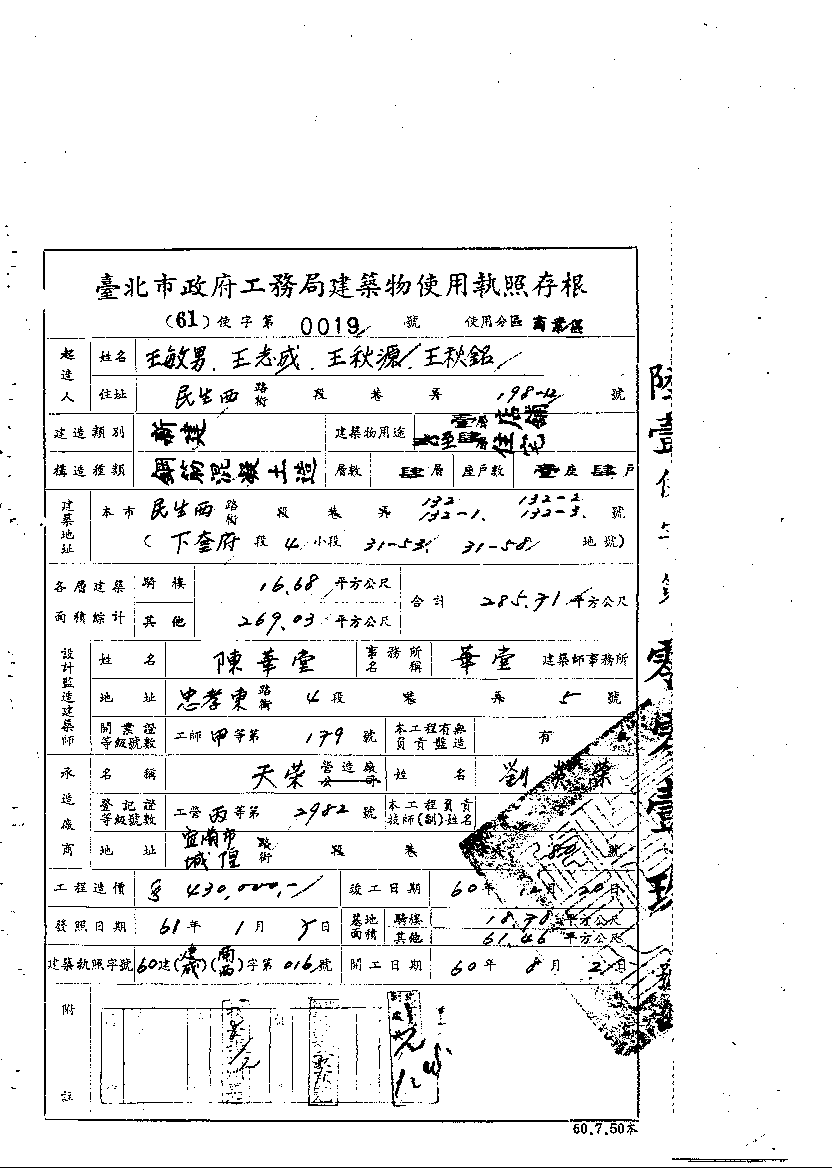 臺北市政府工務局建築物使用執照存根
(61)使字第 0019 號 使用分區 商業區
起造人 姓名 王敏男、王志成、王秋源、王秋銘
住址 民生西 路街 段 巷 弄 198-12 號
建造類別 新建 建築物用途 壹層店舖 貳至肆層住宅
構造種類 鋼筋混凝土造 層數 肆層 座戶數 壹座肆戶
建築地址 本市 民生西 路街 段 巷 弄 132 132-1、 132-2 132-3、 號
( 下奎府 段 4 小段 31-53、 31-58 地號)
各層建築面積綜計 騎樓 16.68 平方公尺 合計 285.71 平方公尺
其他 269.03 平方公尺
設計監造建築師 姓名 陳華堂 事務所名稱 華堂 建築師事務所
地址 忠孝東 路街 4段 巷 弄 5 號
開業證等級號數 工師甲等第 179 號 本工程有無負責監造 有
承造廠商 名稱 天榮 營造廠公司 姓名 劉 榮
登記證等級號數 工營丙等第 2982 號 本工程負責技師(副)姓名
地址 宜蘭市城隍 路街 段 巷 80 號
工程造價 $ 430,000.- 竣工日期 60年12月20日
發照日期 61年 1月 日 基地面積 騎樓 18.78 平方公尺
其他 61.46 平方公尺
建築執照字號 60建(建成)(南西)字第 016 號 開工日期 60年 8月 2日
附註
60.7.50本
零零壹玖